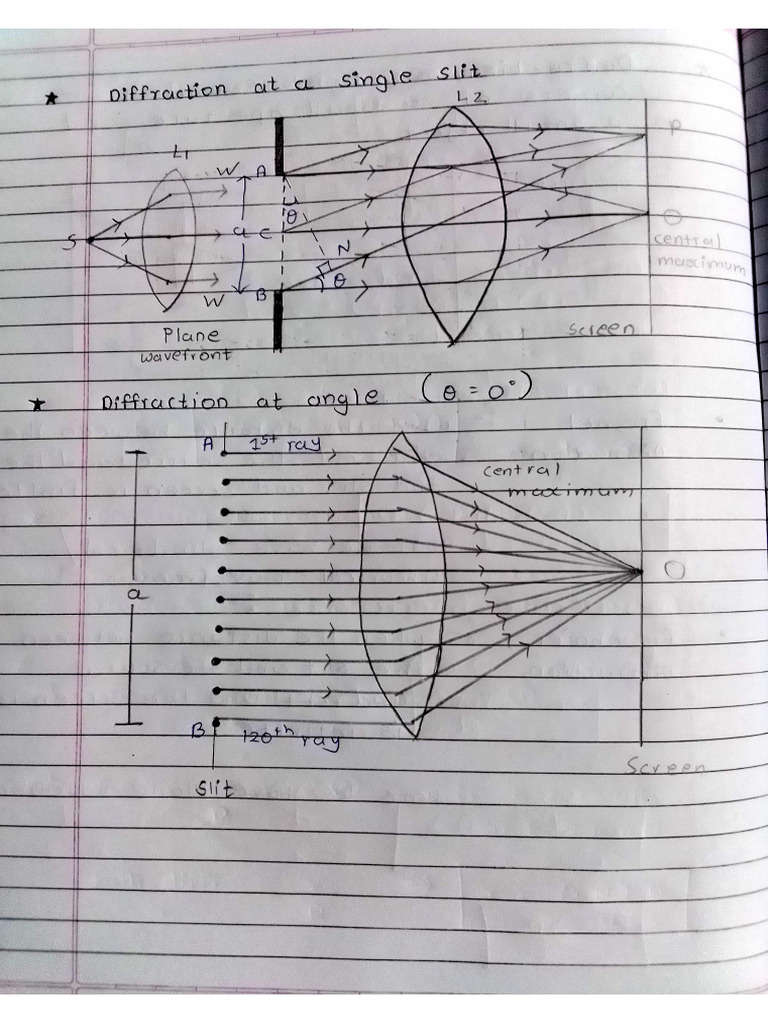 ★ Diffraction at a single slit
L2
P
L1
W
A
θ
S
a
C
O
N
central
maximum
θ
B
W
Plane
wavefront
screen
★ Diffraction at angle (θ = 0°)
A 1st ray
central
maximum
a
O
B 120th ray
Screen
Slit